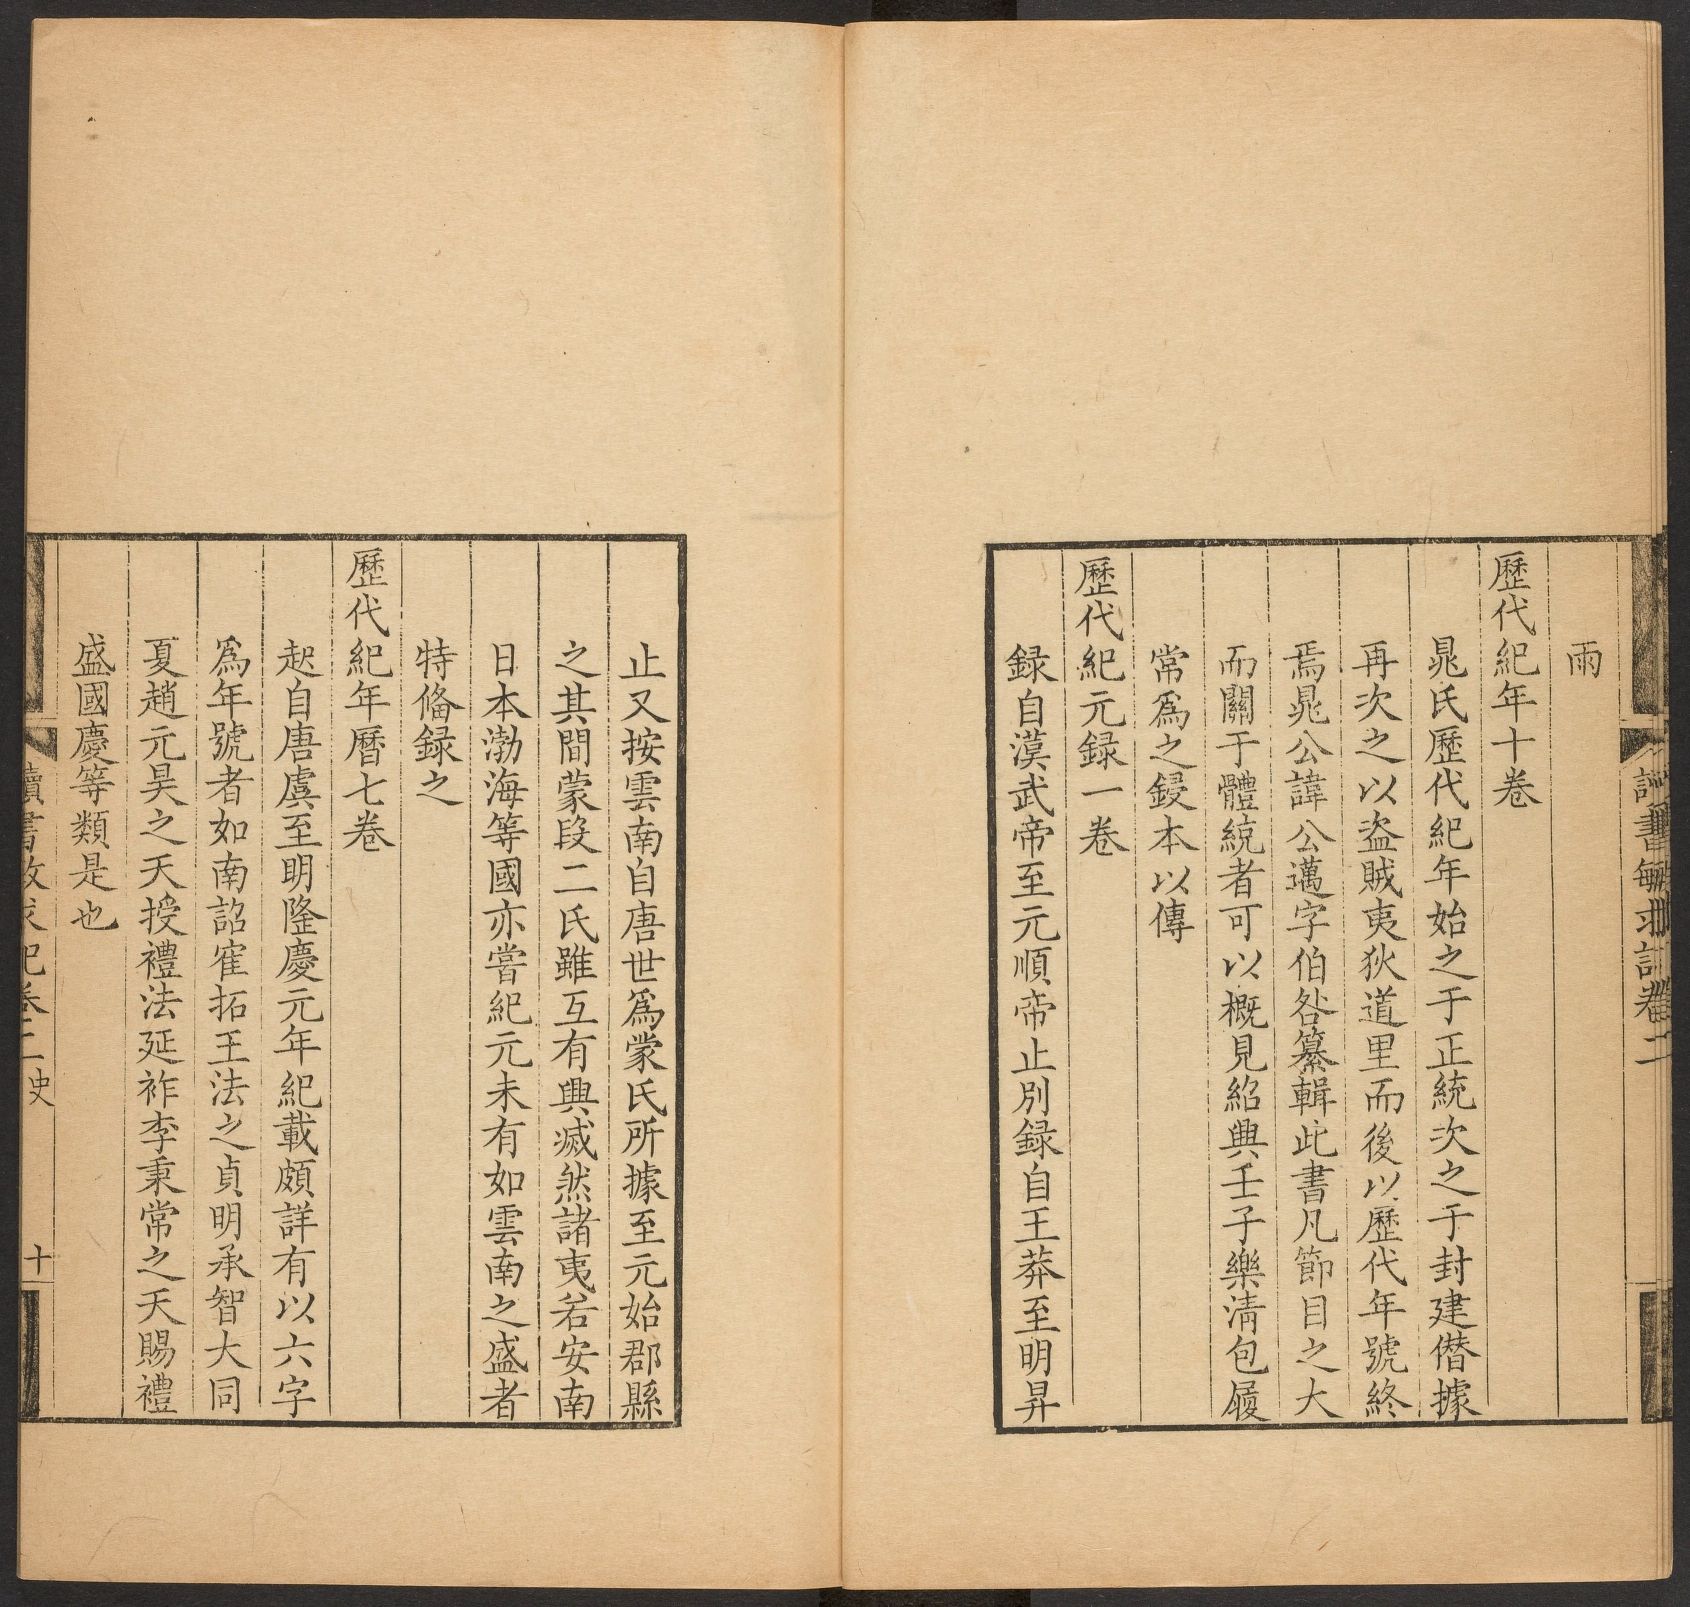 雨
歷代紀年十卷
晁氏歷代紀年始之于正統次之于封建僭據
再次之以盗賊夷狄道里而後以歷代年號終
焉晁公諱公邁字伯咎纂輯此書凡節目之大
而關于體統者可以概見紹興壬子樂清包履
常爲之鋟本以傳
歷代紀元録一卷
録自漢武帝至元順帝止别録自王莽至明昇
止又按雲南自唐世爲蒙氏所據至元始郡縣
之其間蒙段二氏雖互有興滅然諸夷若安南
日本渤海等國亦嘗紀元未有如雲南之盛者
特俻録之
歷代紀年曆七卷
起自唐虞至明隆慶元年紀載頗詳有以六字
爲年號者如南詔寉拓王法之貞明承智大同
夏趙元昊之天授禮法延祚李秉常之天賜禮
盛國慶等類是也
讀書敏求記卷二史
十